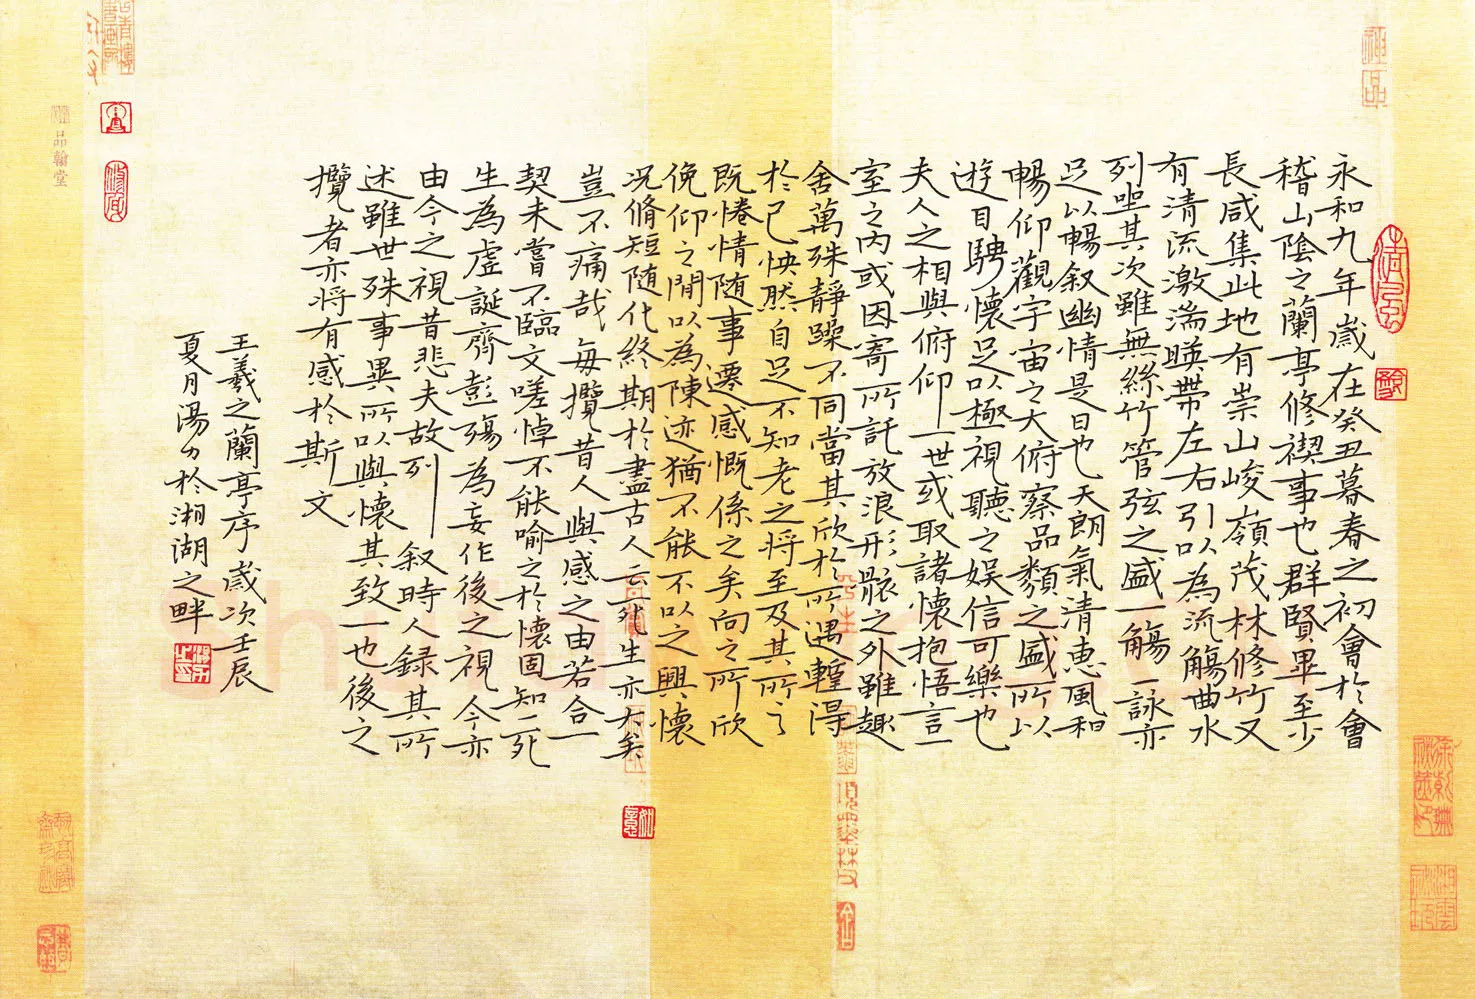 永和九年歲在癸丑暮春之初會於會
稽山陰之蘭亭修禊事也群賢畢至少
長咸集此地有崇山峻嶺茂林修竹又
有清流激湍暎帶左右引以為流觴曲水
列坐其次雖無絲竹管弦之盛一觴一詠亦
足以暢叙幽情是日也天朗氣清惠風和
暢仰觀宇宙之大俯察品類之盛所以
遊目騁懷足以極視聽之娛信可樂也
夫人之相與俯仰一世或取諸懷抱悟言一
室之內或因寄所託放浪形骸之外雖趣
舍萬殊靜躁不同當其欣於所遇蹔得
於己怏然自足不知老之將至及其所之
既惓情隨事遷感慨係之矣向之所欣
俛仰之閒以為陳迹猶不能不以之興懷
況脩短隨化終期於盡古人云死生亦大矣
豈不痛哉每攬昔人興感之由若合一
契未嘗不臨文嗟悼不能喻之於懷固知一死
生為虛誕齊彭殤為妄作後之視今亦
由今之視昔悲夫故列叙時人録其所
述雖世殊事異所以興懷其致一也後之
攬者亦將有感於斯文
王羲之蘭亭序歲次壬辰
夏月湯力於湘湖之畔
品翰堂